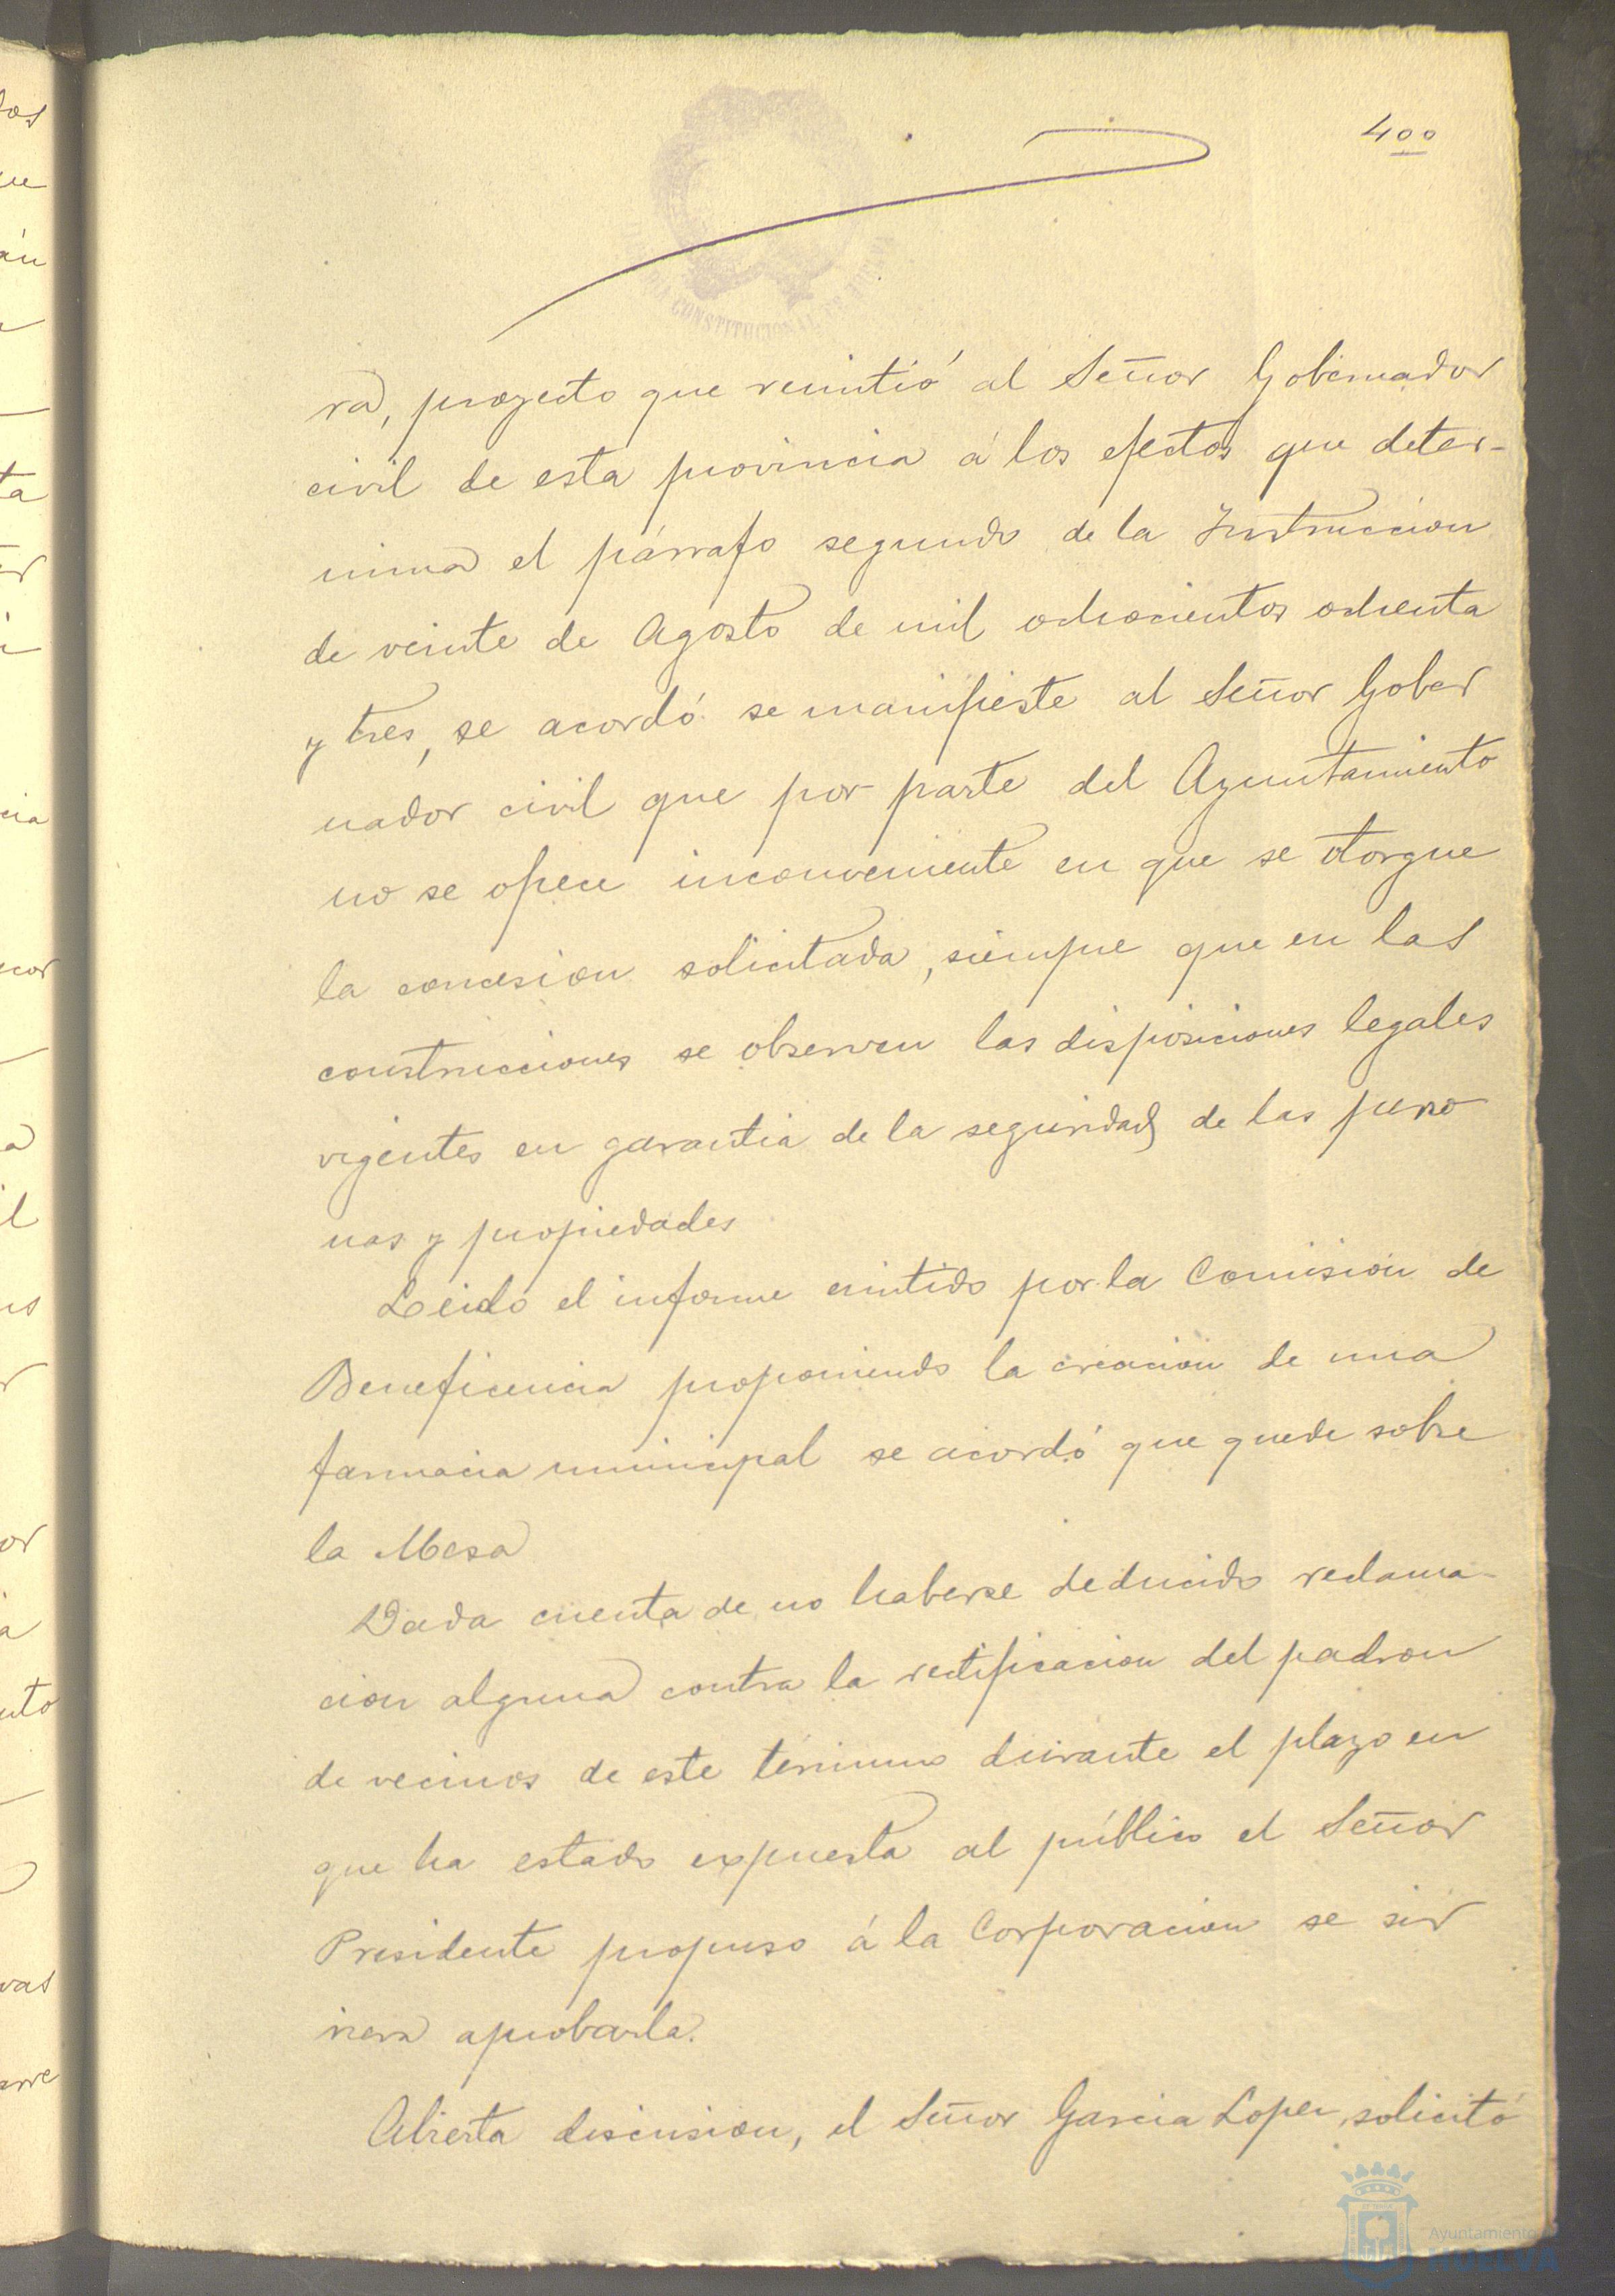 400
CONSTITUCIONAL
ra, proyecto que remitió al Señor Gobernador
civil de esta provincia á los efectos que deter-
mina el párrafo segundo de la Instruccion
de veinte de Agosto de mil ochocientos ochenta
y tres, se acordó se manifieste al Señor Gober
nador civil que por parte del Ayuntamiento
no se ofrece inconveniente en que se otorgue
la concesion solicitada, siempre que en las
construcciones se observen las disposiciones legales
vigentes en garantia de la seguridad de las perso
nas y propiedades
Leido el informe emitido por la Comision de
Beneficencia proponiendo la creacion de una
farmacia municipal se acordó que quede sobre
la Mesa
Dada cuenta de no haberse deducido reclama-
cion alguna contra la rectificacion del padron
de vecinos de este término durante el plazo en
que ha estado expuesta al público el Señor
Presidente propuso á la Corporacion se sir
viera aprobarla.
Abierta discusion, el Señor Garcia Lopez, solicitó
Ayuntamiento
HUELVA